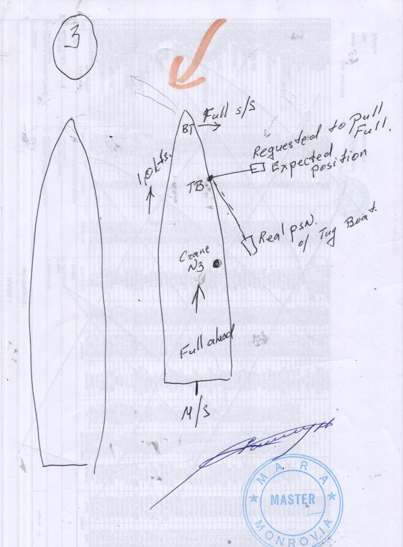 3
BT
Full s/s
1,0 kts.
Requested to pull
Full.
Expected
position
TB
Real psn.
of Tug Boat.
Crane
N3
Full ahead
M/S
MARA
MASTER
MONROVIA